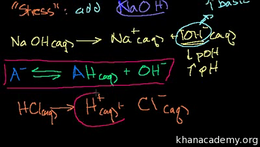 "Stress": add NaOH ↑ basic
NaOH(aq) → Na⁺(aq) + OH⁻(aq)
↓ pOH
↑ pH
A⁻ ⇌ AH(aq) + OH⁻
HCl(aq) → H⁺(aq) + Cl⁻(aq)
khanacademy.org